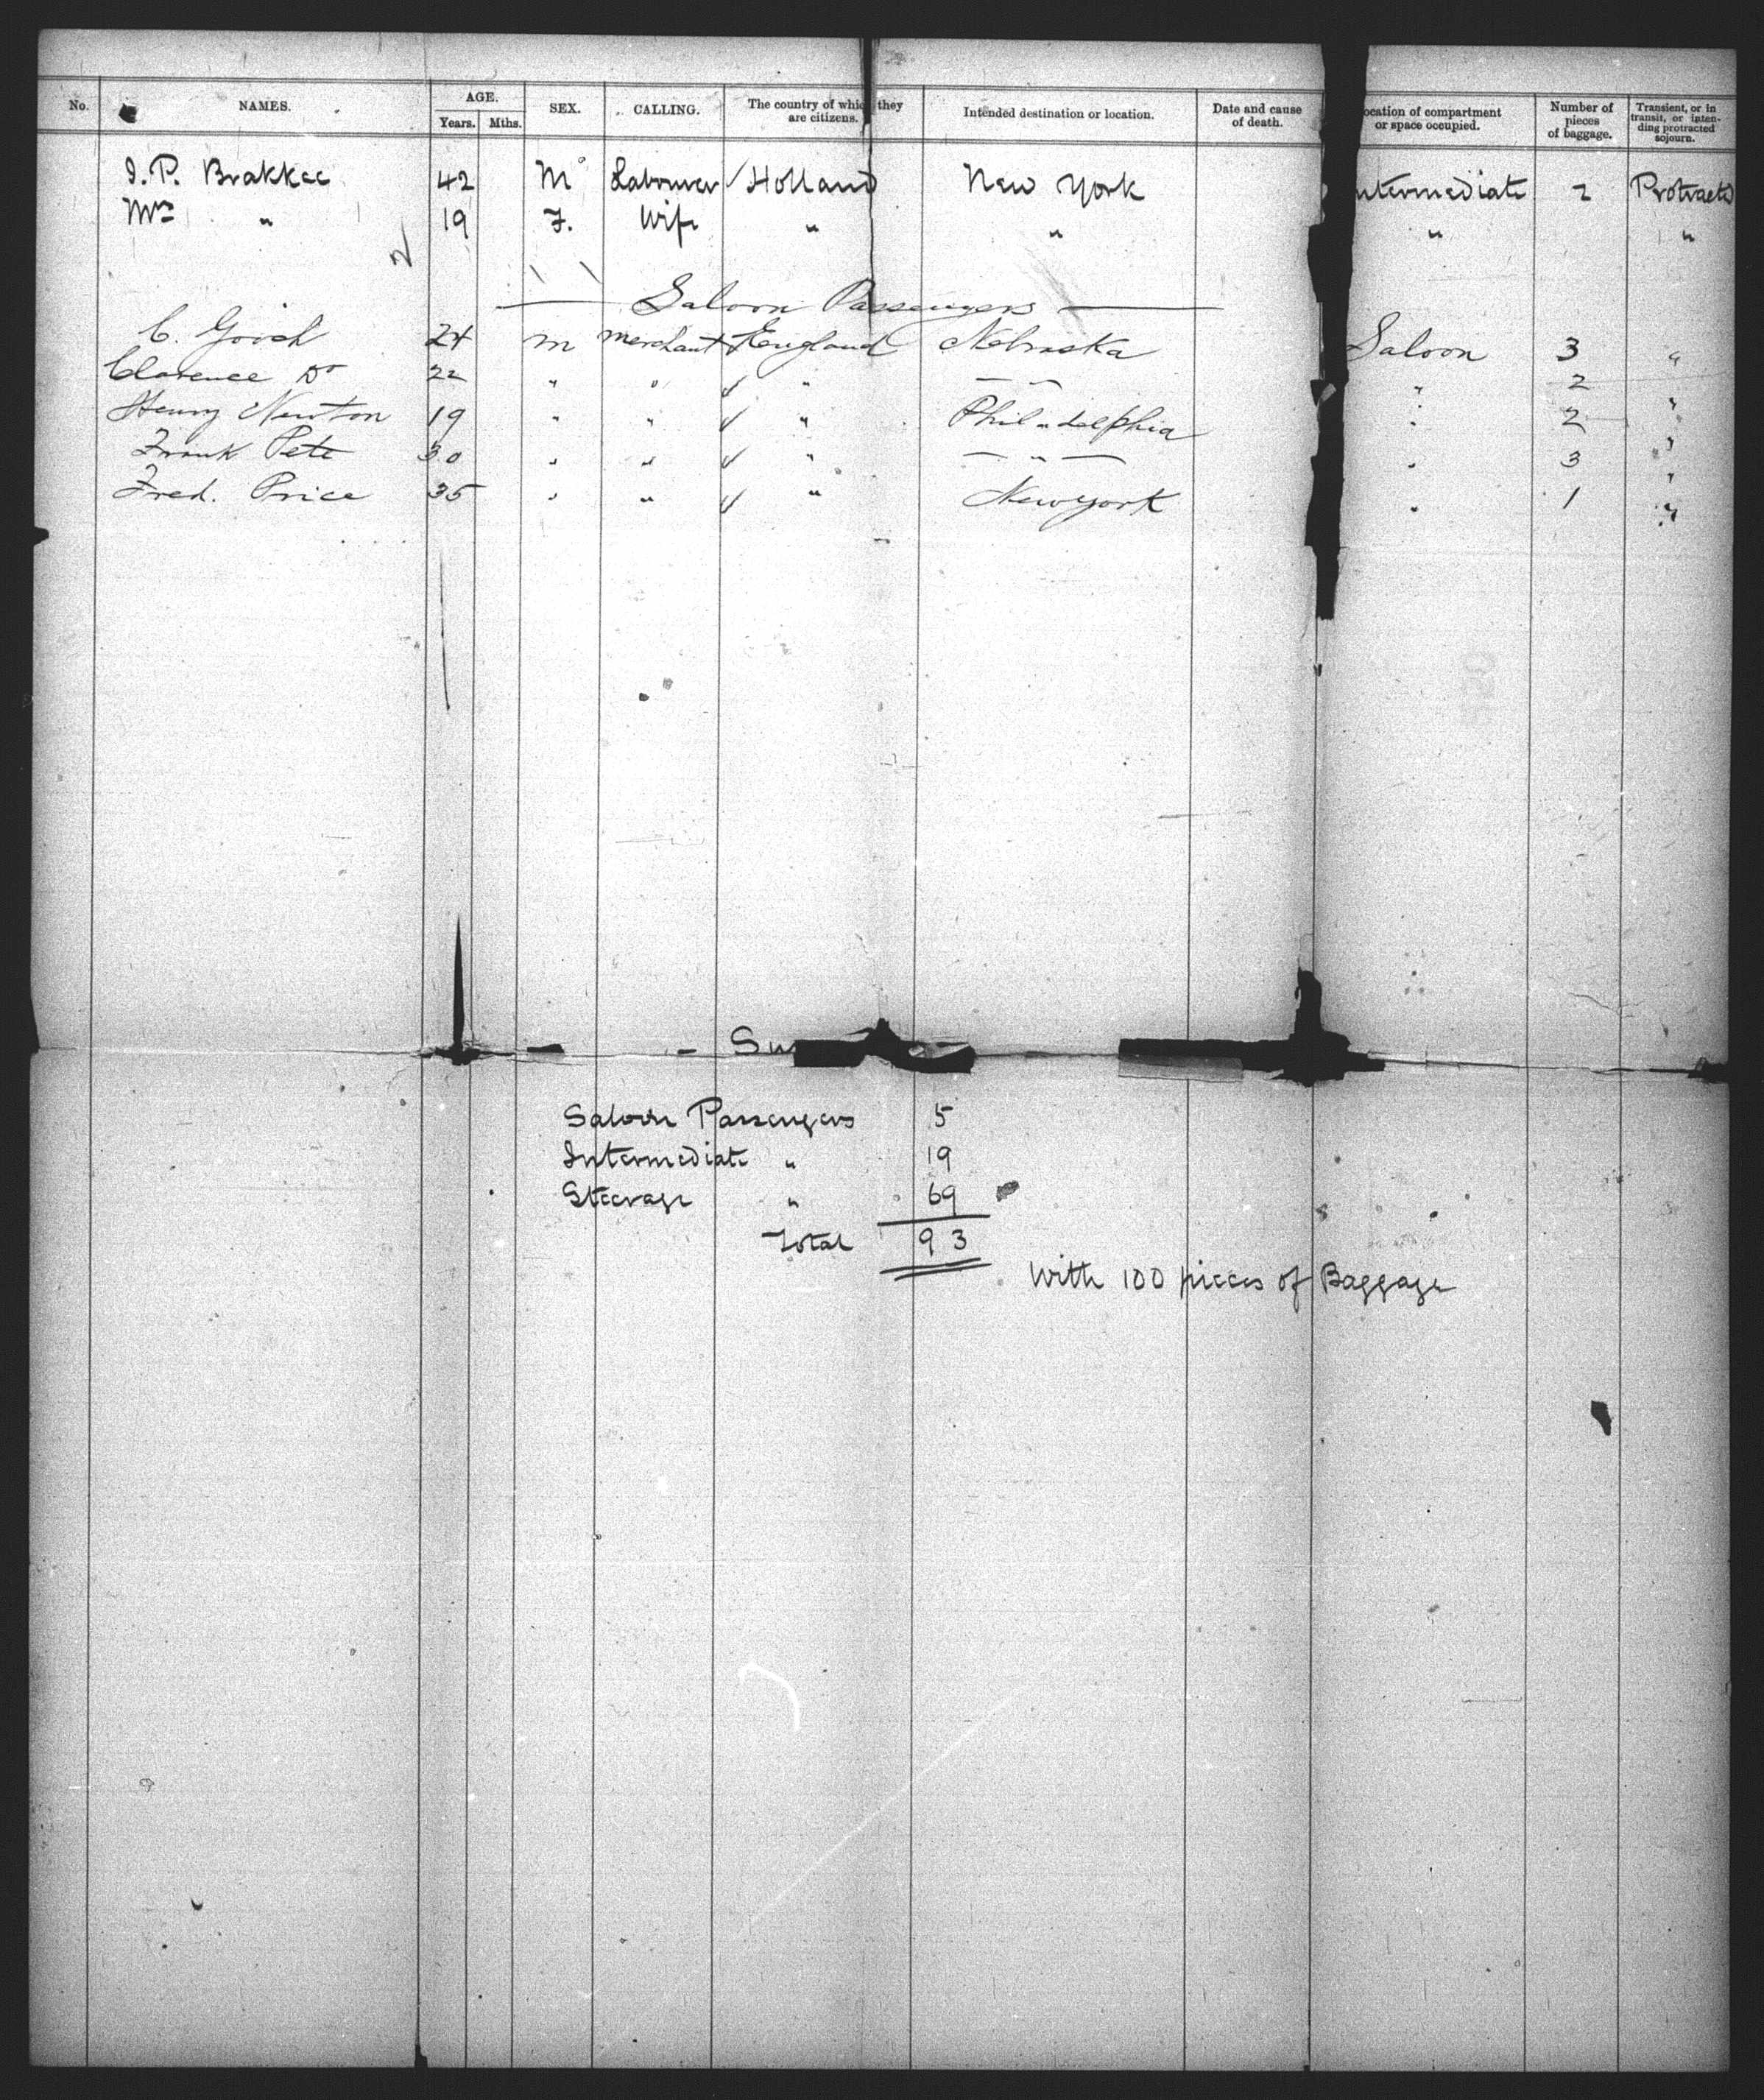 No. NAMES. AGE. Years. Mths. SEX. CALLING. The country of which they are citizens. Intended destination or location. Date and cause of death. ocation of compartment or space occupied. Number of pieces of baggage. Transient, or in transit, or intending protracted sojourn.
I. P. Brakkee 42 M Labourer Holland New York ntermediate 2 Protracted
Mrs " 19 F. Wife " " " "
Saloon Passengers
C. Gooch 24 m Merchant England Nebraska Saloon 3 "
Clarence Do 22 " " " — " — " 2 "
Henry Newton 19 " " " Philadelphia " 2 "
Frank Pete 30 " " " — " — " 3 "
Fred. Price 35 " " " New York " 1 "
Su
Saloon Passengers 5
Intermediate " 19
Steerage " 69
Total 93
With 100 pieces of Baggage